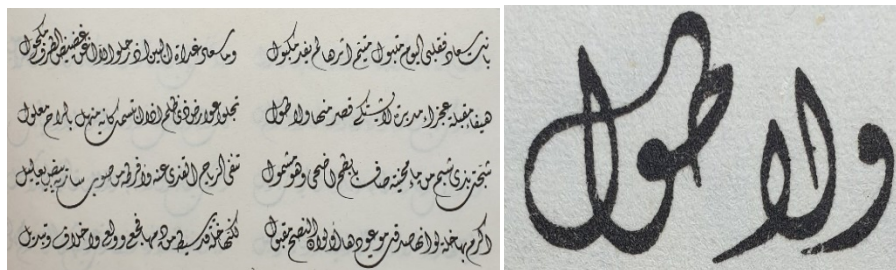 بانت سعاد فقلبي اليوم متبول متيم اثرها لم يفد مكبول وما سعاد غداة البين اذ رحلوا الا اغن غضيض الطرف مكحول
هيفاء مقبلة عجزاء مدبرة لا يشتكى قصر منها ولا طول تجلو عوارض ذى ظلم اذا ابتسمت كانه منهل بالراح معلول
شجت بذى شبم من ماء محنية صاف بابطح اضحى وهو مشمول تنفى الرياح القذى عنه وافرطه من صوب سارية بيض يعاليل
اكرم بها خلة لو انها صدقت موعودها او لو ان النصح مقبول لكنها خلة قد سيط من دمها فجع وولع واخلاف وتبديل
ولا طول